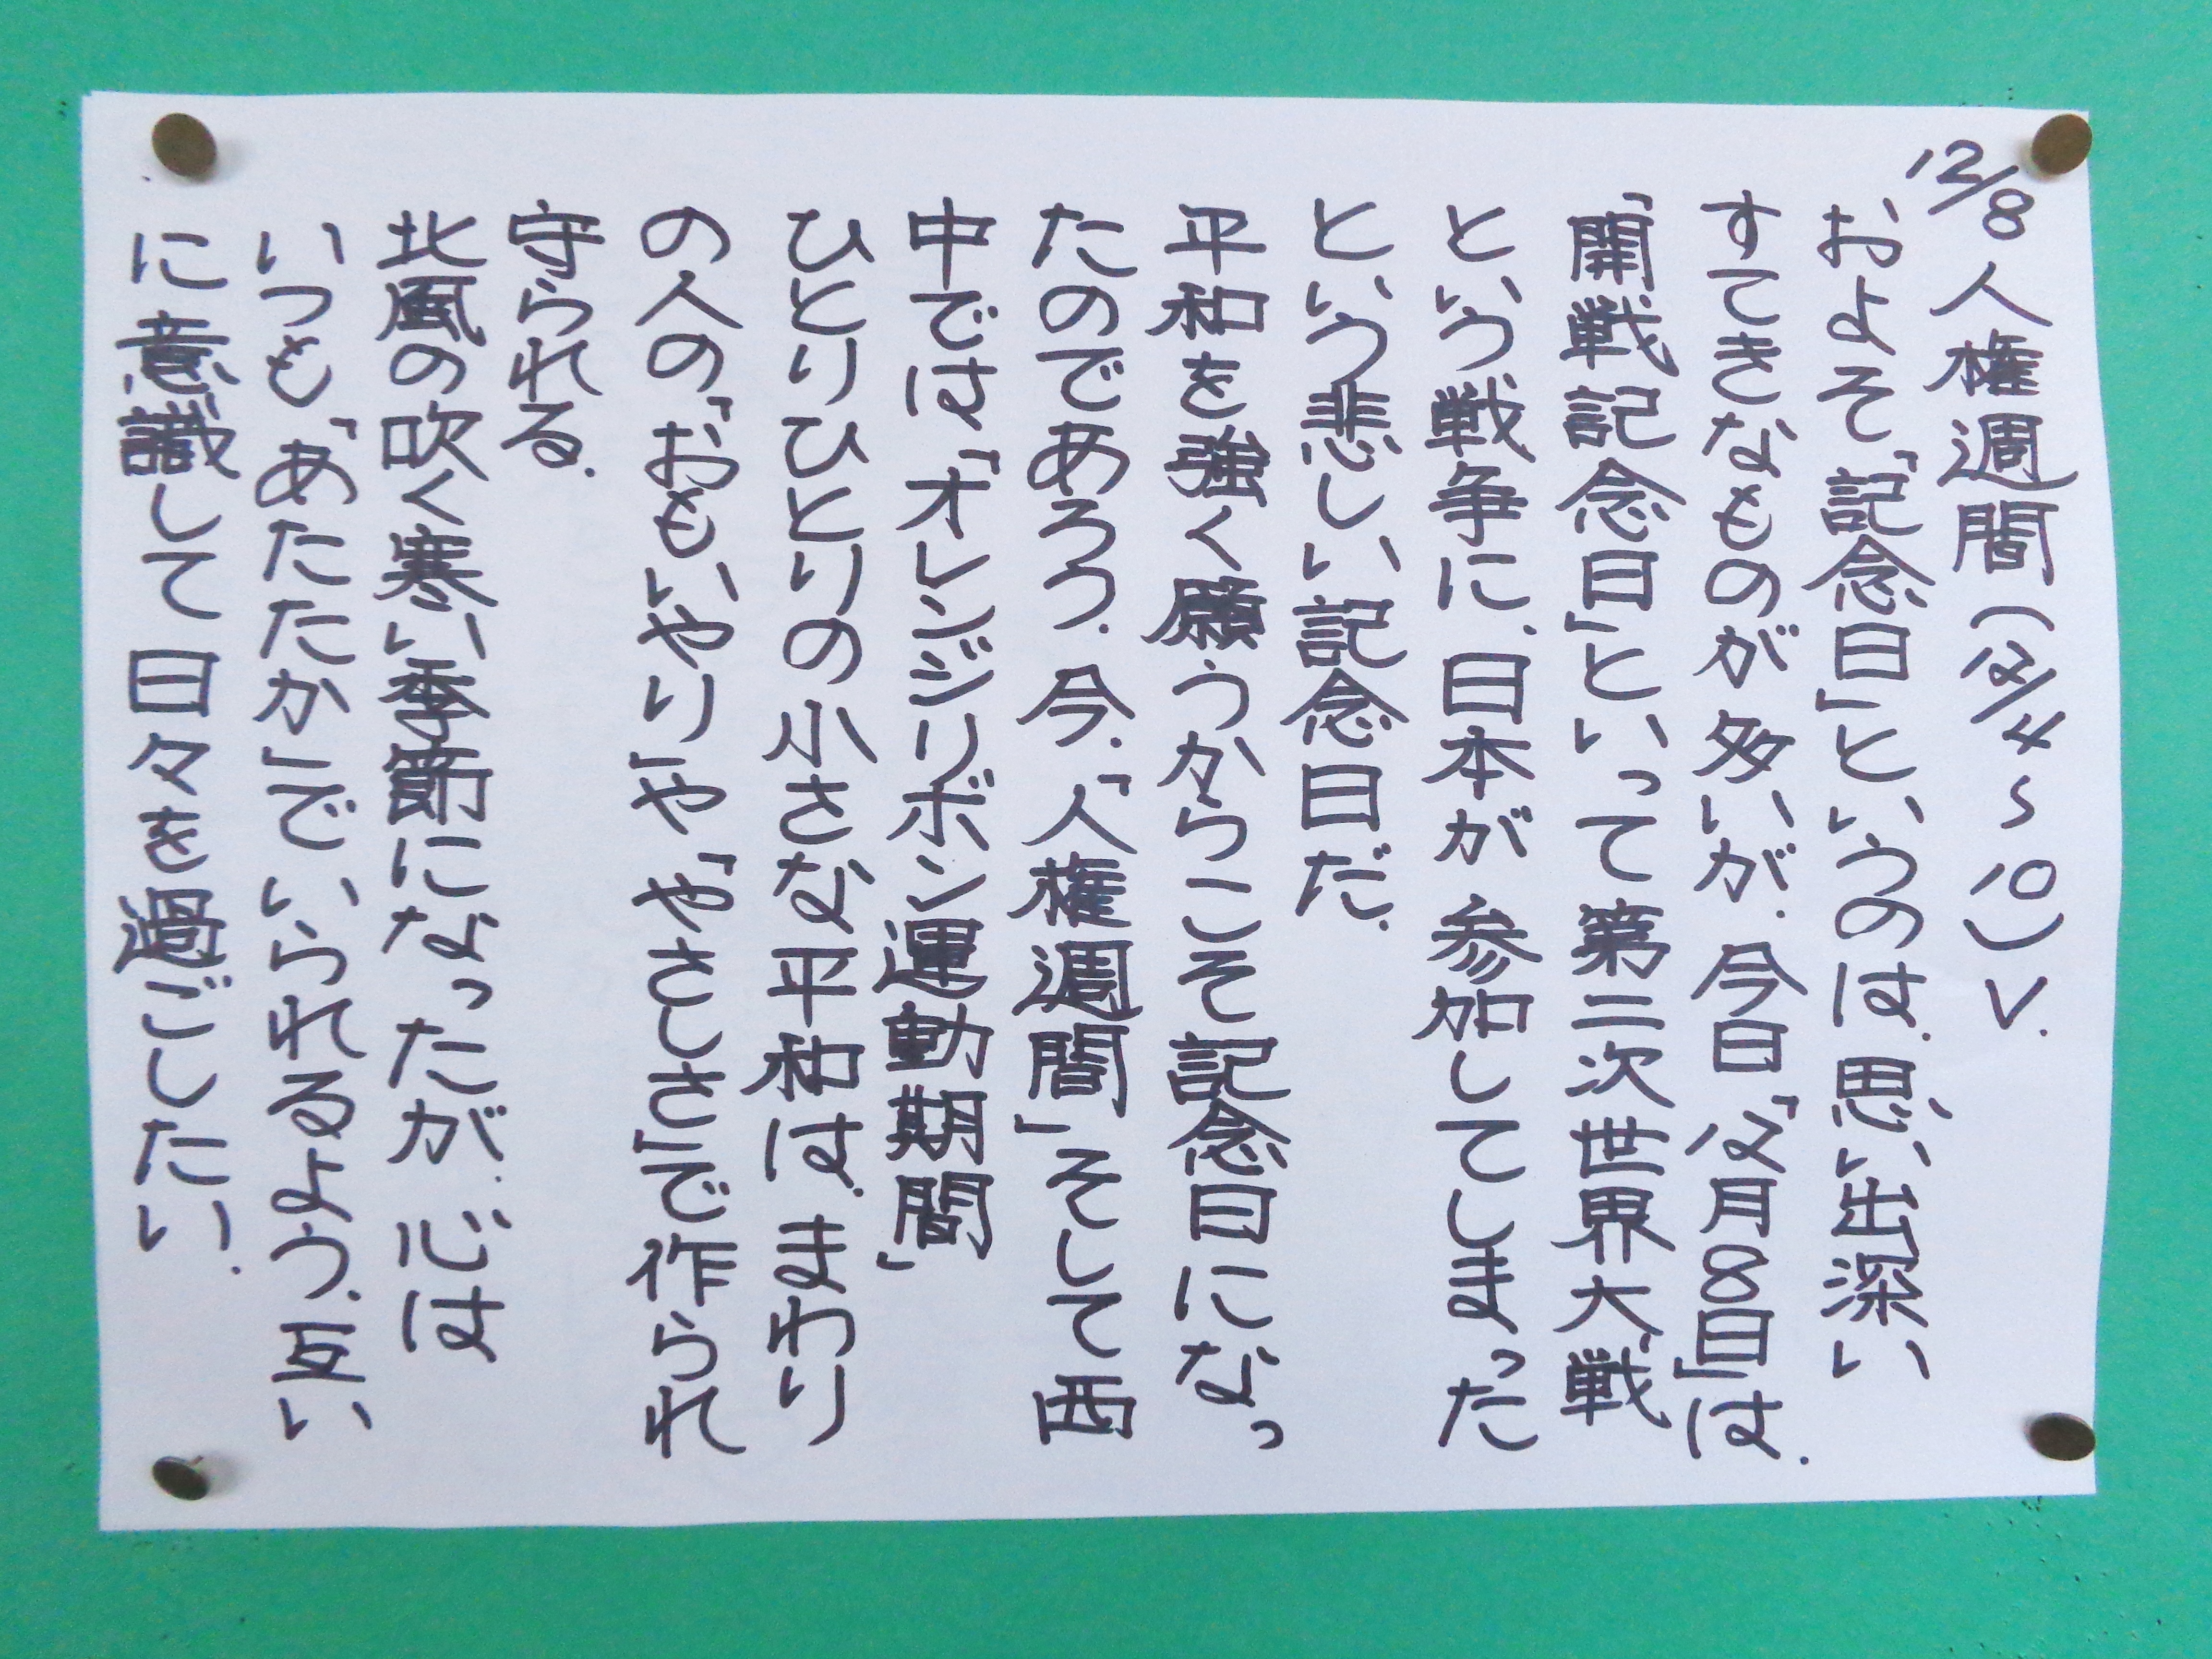 12/8 人権週間(12/4～10)Ⅴ.
およそ「記念日」というのは、思い出深い
すてきなものが多いが、今日「12月8日」は、
「開戦記念日」といって第二次世界大戦
という戦争に、日本が参加してしまった
という悲しい記念日だ.
平和を強く願うからこそ記念日になっ
たのであろう. 今、「人権週間」そして西
中では、「オレンジリボン運動期間」
ひとりひとりの小さな平和は、まわり
の人の、「おもいやり」や「やさしさ」で作られ
守られる.
北風の吹く寒い季節になったが、心は
いつも、「あたたか」でいられるよう、互い
に意識して日々を過ごしたい.